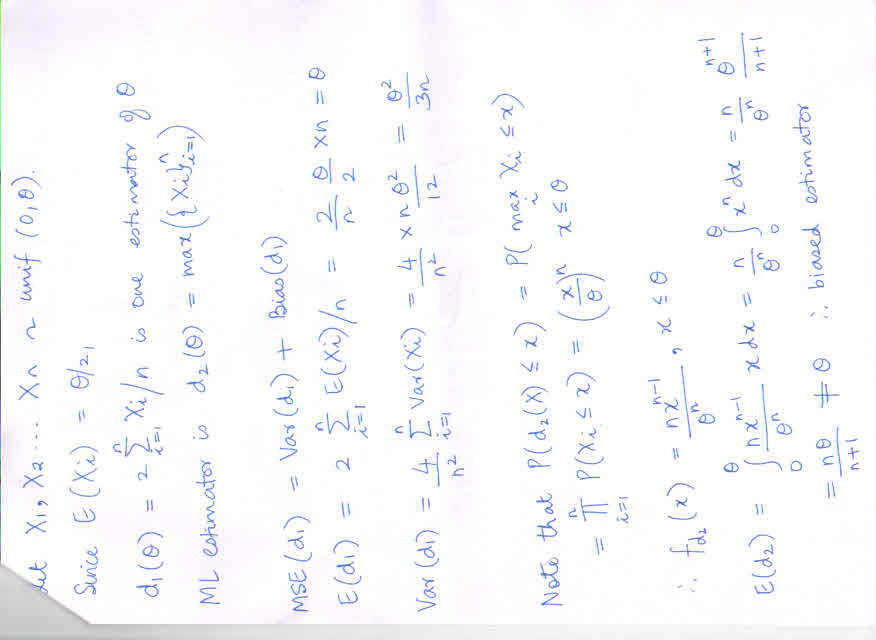 Let X₁, X₂ ... Xn ~ unif (0,θ).
Since E(Xi) = θ/2,
d₁(θ) = 2 ∑_{i=1}^{n} Xi/n is one estimator of θ
ML estimator is d₂(θ) = max({Xi}_{i=1}^{n})
MSE(d₁) = Var(d₁) + Bias(d₁)
E(d₁) = 2 ∑_{i=1}^{n} E(Xi)/n = 2/n θ/2 × n = θ
Var(d₁) = 4/n² ∑_{i=1}^{n} Var(Xi) = 4/n² × n θ²/12 = θ²/3n
Note that P(d₂(X) ≤ x) = P(max_i Xi ≤ x)
= ∏_{i=1}^{n} P(Xi ≤ x) = (x/θ)^n x ≤ θ
∴ f_{d₂}(x) = nx^{n-1}/θ^n, x ≤ θ
E(d₂) = ∫_0^θ nx^{n-1}/θ^n x dx = n/θ^n ∫_0^θ x^n dx = n/θ^n θ^{n+1}/n+1
= nθ/n+1 ≠ θ ∴ biased estimator